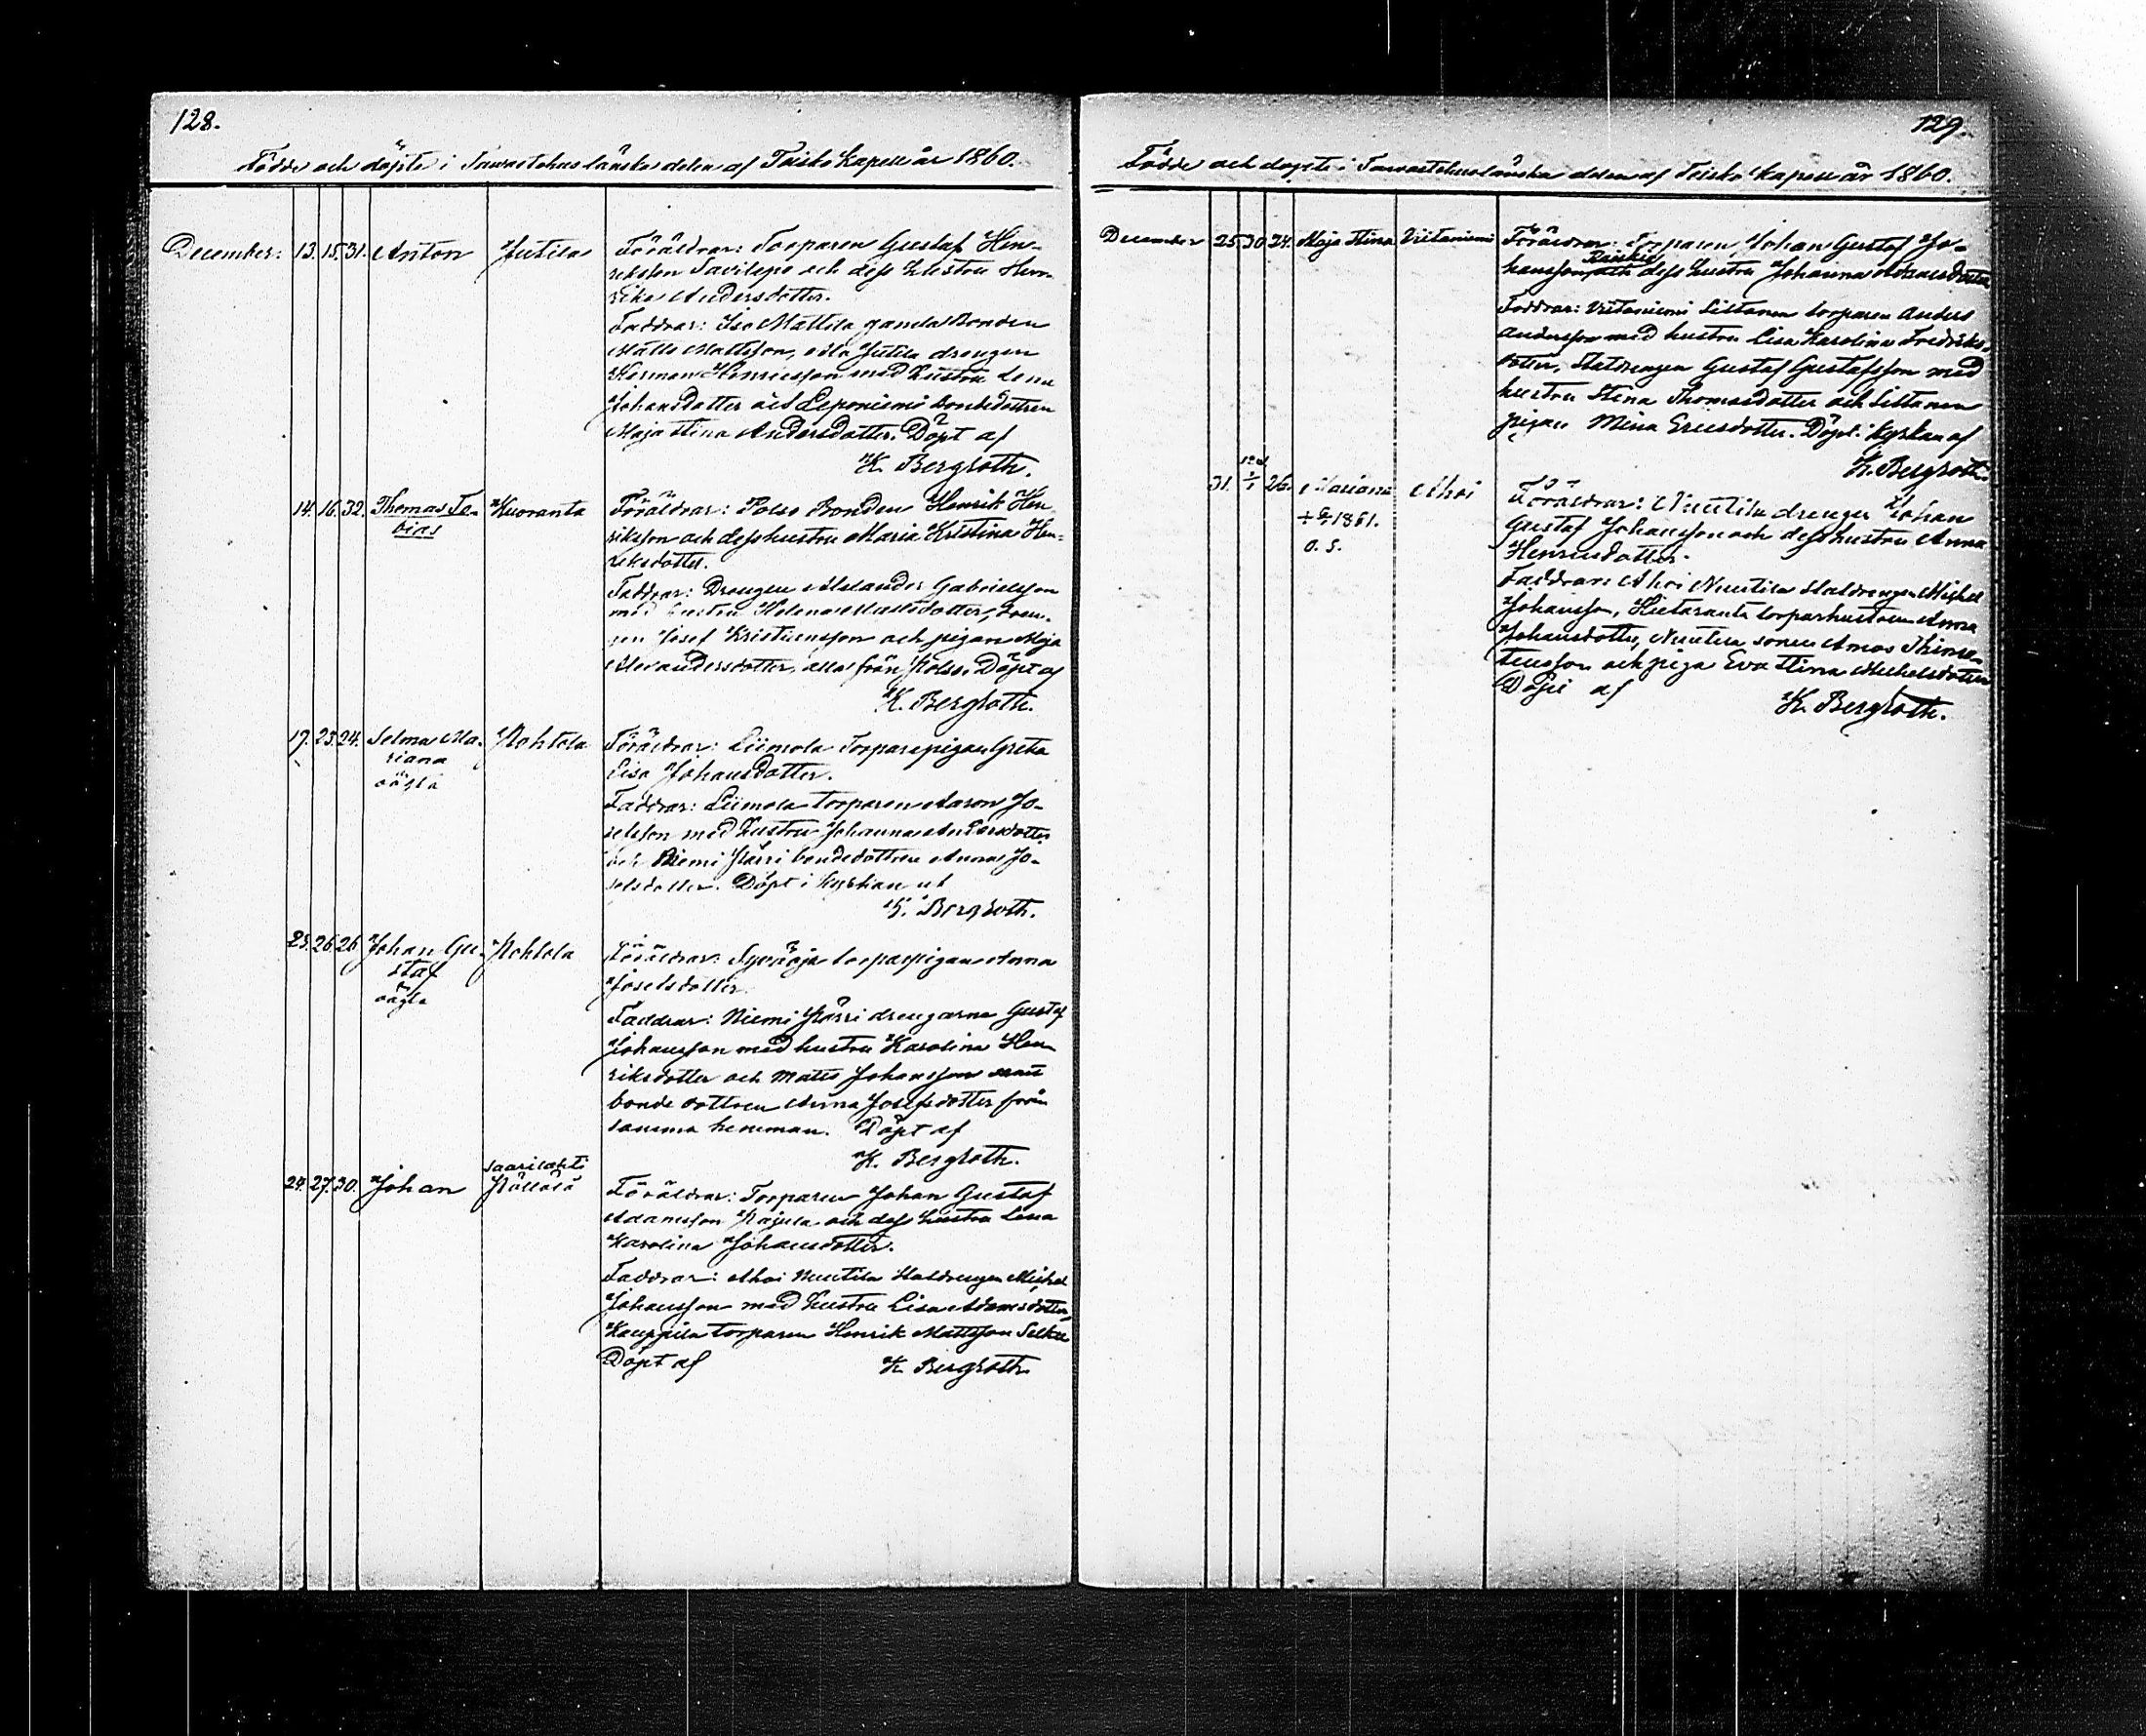 128.
Födde och döpte i Tawastehus länska delen af Teisko Kapell år 1860.
December: 13. 15. 31. Anton Jutila Föräldrar: Torparen Gustaf Hen-
riksson Savilepo och dess hustru Hen-
rika Andersdotter.
Faddrar: Iso Mattila gamla Bonden
Matts Mattsson, Ala Jutila drengen
Herman Henricsson med hustru Lena
Johansdotter och Leponiemi bondedottren
Maja Stina Andersdotter. Döpt af
K. Bergroth.
14. 16. 32. Thomas To- Kuoranta Föräldrar: Polso Bonden Henrik Hen
bias riksson och dess hustru Maria Kristina Hen-
riksdotter.
Faddrar: Drengen Alexander Gabrielsson
med hustru Helena Mattsdotter, dren-
gen Josef Kristiansson och pigan Maja
Alexandersdotter, alla från Polso. Döpt af
K. Bergroth.
17. 23. 24. Selma Ma- Pohtola Föräldrar: Liimola Torparepigan Greta
riana Lisa Johansdotter.
oägta
Faddrar: Liimola torparen Aaron Jo-
sefsson med hustru Johanna Andersdotter
och Niemi Pärri bondedottren Anna Jo-
sefsdotter. Döpt i kyrkan af
K. Bergroth.
23. 26. 26. Johan Gu- Pohtola Föräldrar: torparpigan Anna
staf Josefsdotter.
oägta
Faddrar: Niemi Pärri drengarne Gustaf
Johansson med hustru Karolina Hen
riksdotter och Matts Johansson samt
bonde dottren Anna Josefsdotter från
samma hemman. Döpt af
K. Bergroth.
Saarilahti
24. 27. 30. Johan Pällölä Föräldrar: Torparen Johan Gustaf
Adamsson Pajula och dess hustru Lena
Karolina Johansdotter.
Faddrar: Ahoi Nuutila Statdrengen Michel
Johansson med hustru Lisa Adamsdotter,
Kauppila torparen Henrik Mattsson Selkee
Döpt af K. Bergroth
129.
Födde och döpte i Tawastehuslänska delen af Teisko Kapell år 1860.
December 25. 30. 34. Maja Stina Viitaniemi Föräldrar: Torparen Johan Gustaf Jo-
hansson och dess hustru Johanna Adamsdotter
Faddrar: Viitaniemi Siltanen torparen Anders
Andersson med hustru Lisa Karolina Fredriks-
dotter, Statdrengen Gustaf Gustafsson med
hustru Stina Thomasdotter och Siltanen
pigan Mina Ericsdotter. Döpt i kyrkan af
K. Bergroth.
31. 1/1 26. Mariana Ahoi Föräldrar: Nuutila drengen Johan
1861. Gustaf Johansson och dess hustru Anna
o. s. Henricsdotter.
Faddrar: Ahoi Nuutila Statdrengen Michel
Johansson, Hietaranta torparhustrun Anna
Johansdotter, Nuutila sonen Amos Thimo-
teusson och piga Eva Stina Michelsdotter
Döpt af K. Bergroth.